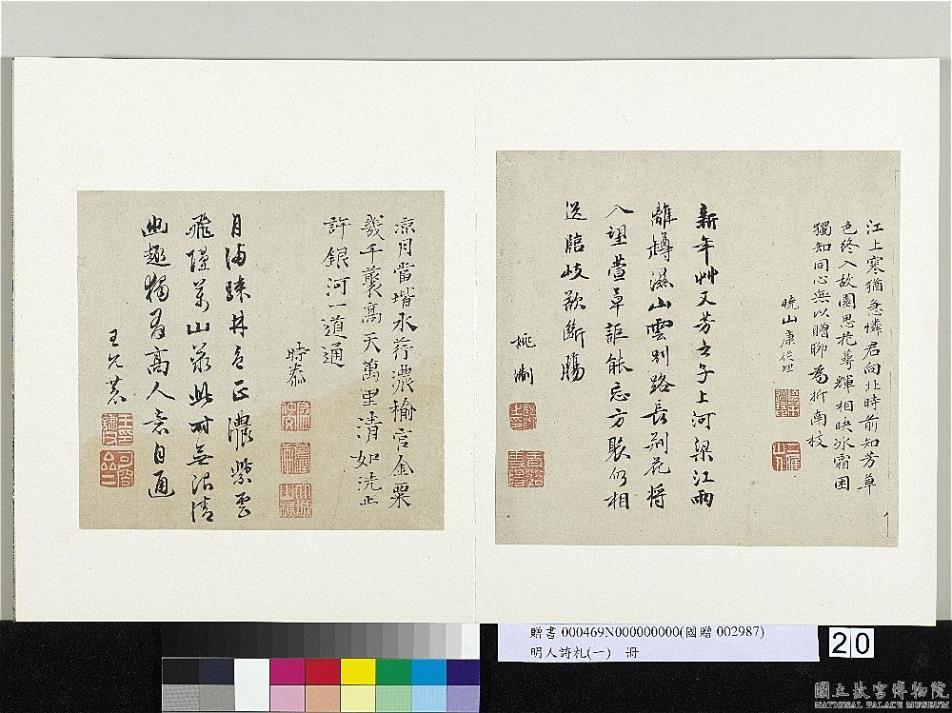 江上寒猶急憐君向北時前知芳草
色終入故園思花萼輝相映冰霜困
獨知同心無以贈聊為折南枝
曉山康從理
新年艸又芳古子上河梁江雨
離樽濕山雲別路長荊花將
入望萱草詎能忘方聚仍相
送臨歧欲斷腸
姚淛
涼月當堦水荇濃榆宮金粟
幾千叢高天萬里清如洗正
許銀河一道通
時泰
月滿疎林色正濃紫雲
飛隱萬山
此時無限清
幽趣獨有高人意自通
王允
贈書 000469N000000000(國贈 002987)
明人詩札(一) 冊
20
國立故宮博物院
NATIONAL PALACE MUSEUM